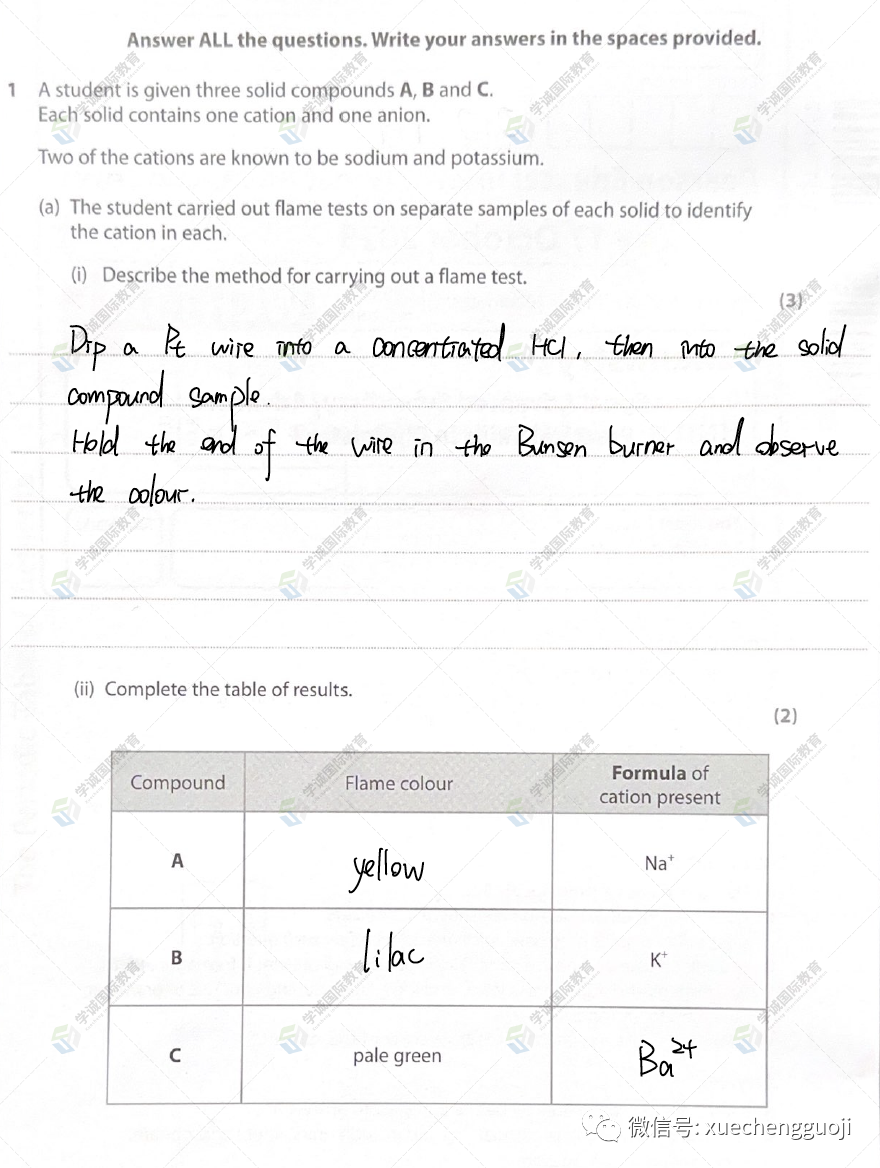 Answer ALL the questions. Write your answers in the spaces provided.
1 A student is given three solid compounds A, B and C.
Each solid contains one cation and one anion.
Two of the cations are known to be sodium and potassium.
(a) The student carried out flame tests on separate samples of each solid to identify
the cation in each.
(i) Describe the method for carrying out a flame test.
(3)
Dip a Pt wire into a concentrated HCl, then into the solid
compound sample.
Hold the end of the wire in the Bunsen burner and observe
the colour.
(ii) Complete the table of results.
(2)
Compound Flame colour Formula of
cation present
A yellow Na⁺
B lilac K⁺
C pale green Ba²⁺
微信号: xuechengguoji
学诚国际教育